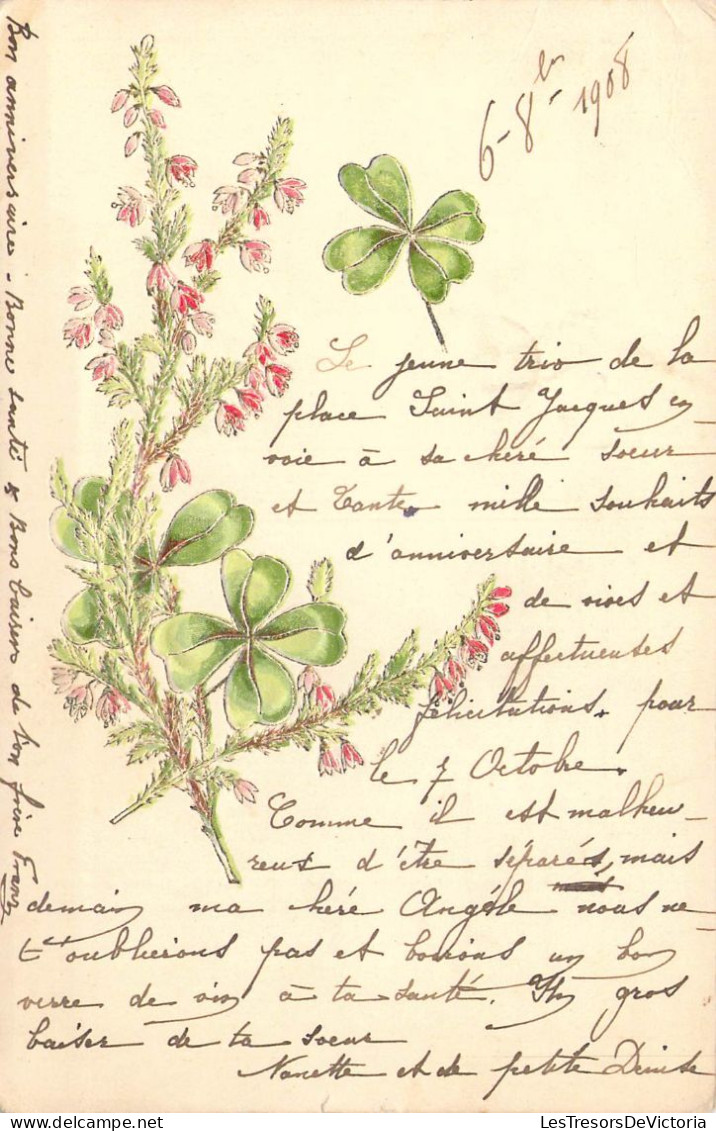 6-8bre 1908
Le jeune trio de la
place Saint Jacques en
voie à sa chéré soeur
et Tante mille souhaits
d'anniversaire et
de vives et
affectueuses
félicitations. pour
le 7 Octobre.
Comme il est malheu-
reux d'être séparés, mais
demain ma chéré Angéle nous ne
t'oublierons pas et boirons un bon
verre de vin à ta santé. Un gros
baiser de ta soeur
Nanette et de petite Denise
Bon anniversaire - Bonne santé & Bons baisers de ton frère Franz
LesTresorsDeVictoria